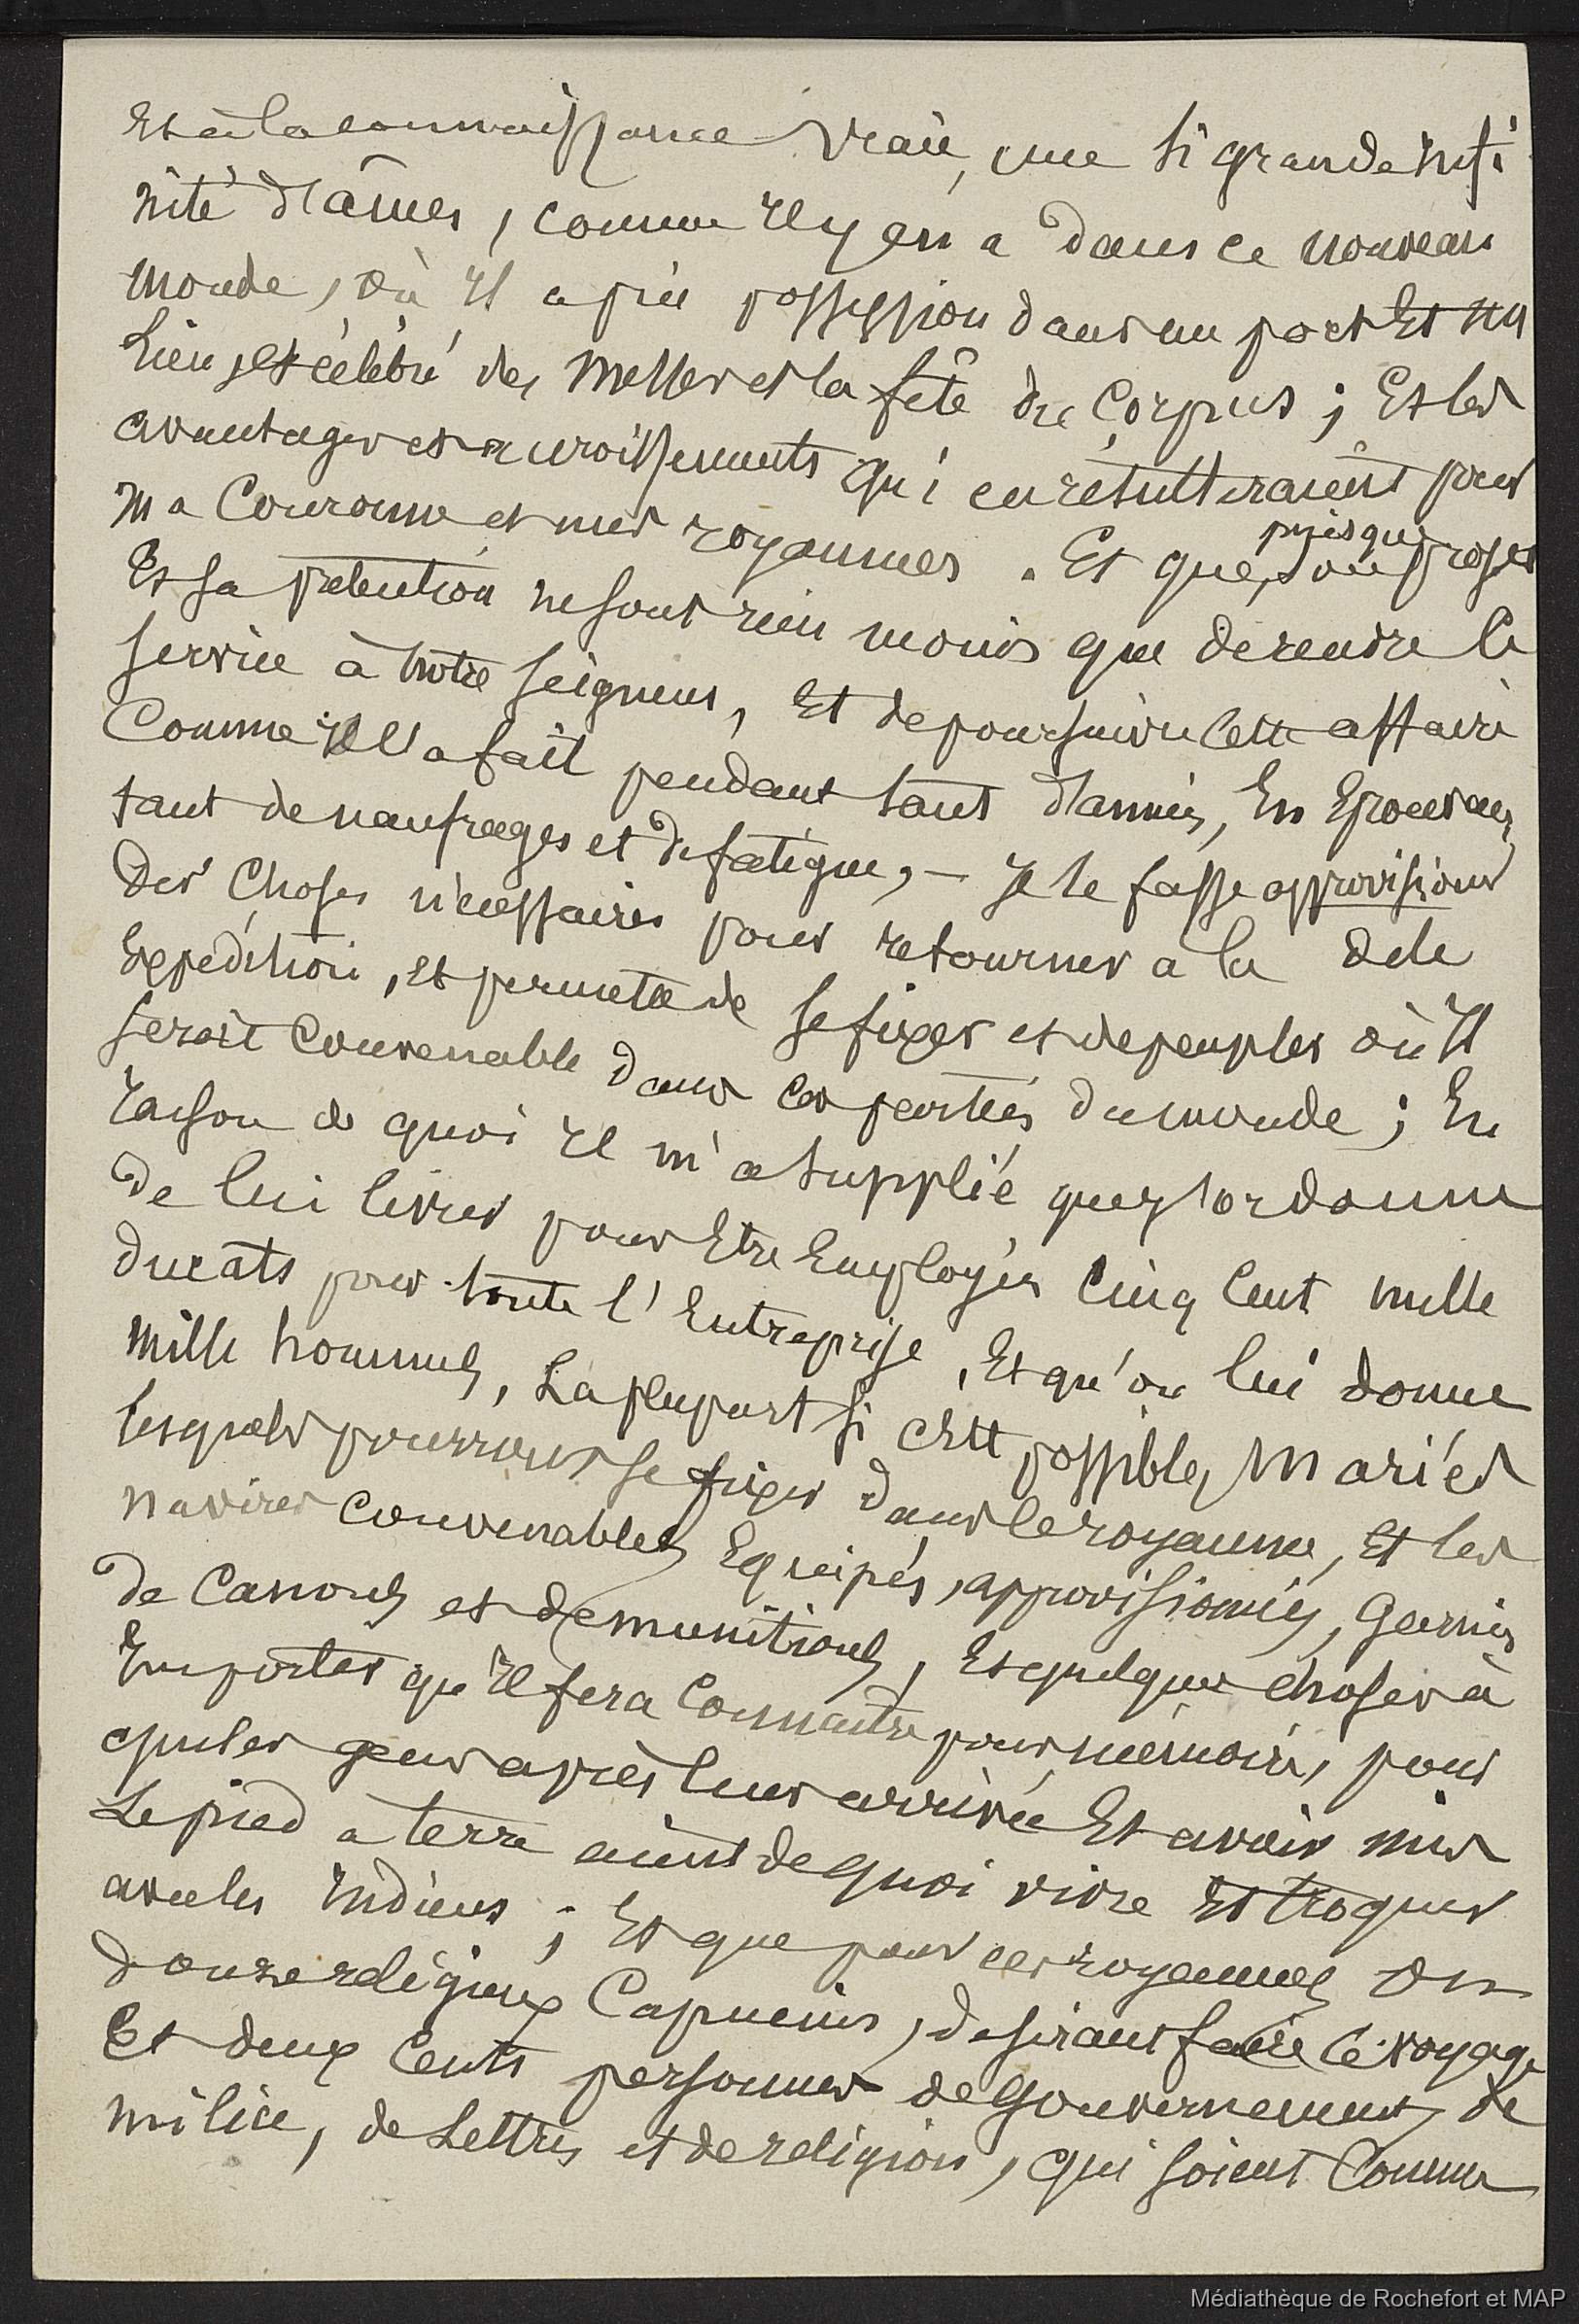 Et à la connaissance vraie, une si grande infi
nité d'âmes, comme Il y en a dans ce nouveau
monde, où Il a pris possession dans un port Et un
Lieu, et célébré des Messes et la fête du Corpus ; Et les
avantages et accroissements qui en résulteraient pour
ma Couronne et mes royaumes . Et que, puisque son projet
Et sa prétention ne sont rien moins que de rendre ce
service à notre Seigneur, Et de poursuivre cette affaire
Comme Il l'a fait pendant tant d'années, En Eprouvant
tant de naufrages et de fatigue, – Je le fasse approvisionner
Des Choses nécessaires pour retourner à la dite
Expédition, Et permette de se fixer et de peupler où Il
serait Convenable dans ces parties du monde ; En
raison de quoi Il m'a supplié que j'ordonne
de lui livrer pour Etre Employés Cinq Cent mille
ducats pour toute l'Entreprise, Et qu'on lui donne
Mille hommes, La plupart si C'est possible, Mariés
lesquels pourront se fixer dans le royaume, Et les
navires Convenables Equipés, approvisionnés, Garnis
de Canons et de munitions, Et quelques choses à
Emporter qu'Il fera Connaître pour mémoire, pour
que les gens après leur arrivée Et avoir mis
Le pied à terre aient de quoi vivre Et troquer
avec les Indiens ; Et que pour ces royaumes On
donne religieux Capucins, désirant faire ce voyage
Et deux Cents personnes de Gouvernement, de
milice, de Lettres et de religion, qui soient Comme
Médiathèque de Rochefort et MAP